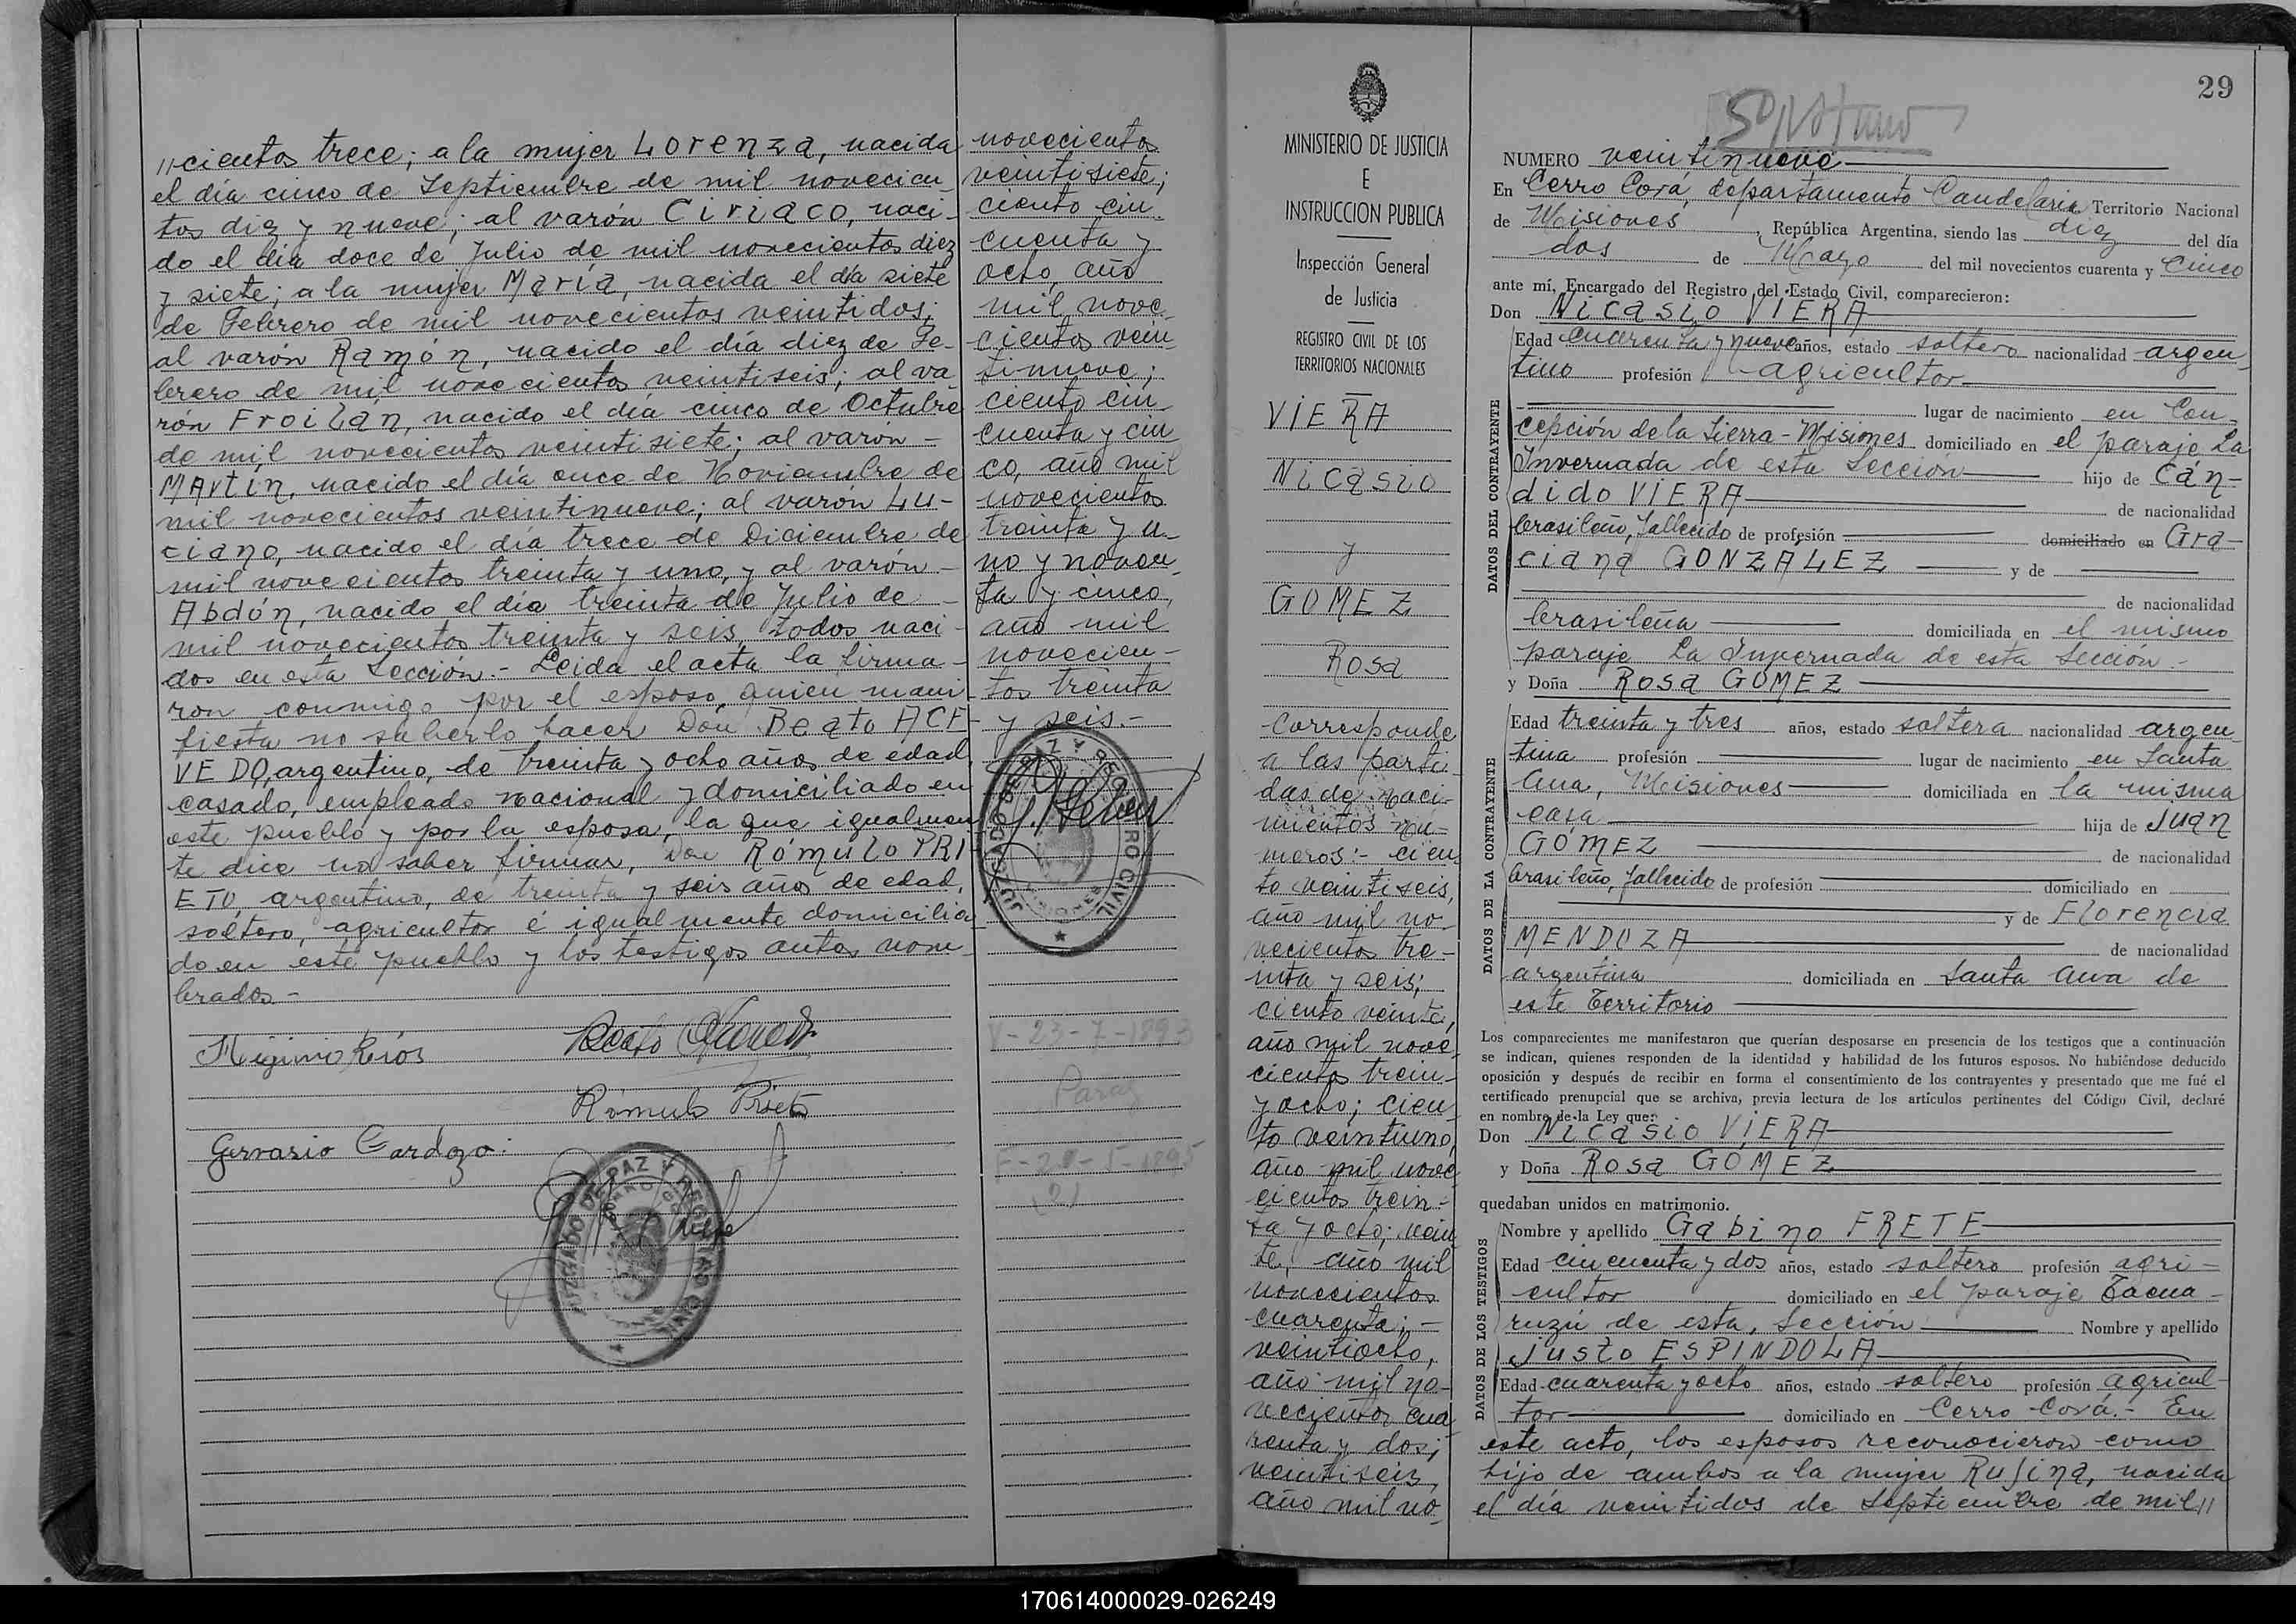 //cientos trece; a la mujer Lorenza, nacida
el día cinco de Septiembre de mil novecien-
tos diez y nueve; al varón Ciriaco, naci-
do el día doce de Julio de mil novecientos diez
y siete; a la mujer María, nacida el día siete
de Febrero de mil novecientos veintidos;
al varón Ramón, nacido el día diez de Fe-
brero de mil novecientos veintiseis; al va-
rón Froilan, nacido el día cinco de Octubre
de mil novecientos veintisiete; al varón -
Martin, nacido el día once de Noviembre de
mil novecientos veintinueve; al varón Lu-
ciano, nacido el día trece de Diciembre de
mil novecientos treinta y uno, y al varón -
Abdón, nacido el día treinta de Julio de -
mil novecientos treinta y seis, todos naci-
dos en esta Sección.- Leida el acta la firma-
ron conmigo por el esposo, quien mani-
fiesta no saberlo hacer Don Beato ACE-
VEDO, argentino, de treinta y ocho años de edad,
casado, empleado nacional y domiciliado en
este pueblo y por la esposa, la que igualmen-
te dice no saber firmar, Don ROMULO PRI-
ETO, argentino, de treinta y seis años de edad,
soltero, agricultor é igualmente domicilia-
do en este pueblo y los testigos antes nom-
brados.-
Higinio Rios
Beato Acevedo
Rómulo Prieto
Gervasio Cardozo.
JUZGADO DE PAZ Y REGISTRO CIVIL
novecientos
veintisiete;
ciento cin-
cuenta y
ocho, año
mil nove-
cientos vein-
tinueve;
ciento cin-
cuenta y cin-
co, año mil
novecientos
treinta y u-
no y noven-
ta y cinco,
año mil
novecien-
tos treinta
y seis.-
JUZGADO DE PAZ Y REGISTRO CIVIL
V-23-7-1893
Parag
F-21-5-1895
(2)
MINISTERIO DE JUSTICIA
E
INSTRUCCION PUBLICA
Inspección General
de Justicia
REGISTRO CIVIL DE LOS
TERRITORIOS NACIONALES
VIERA
Nicasio
y
GOMEZ
Rosa
Corresponde
a las parti-
das de naci-
mientos nú-
meros:- cien-
to veintiseis,
año mil no-
vecientos tre-
inta y seis;
ciento veinte,
año mil nove-
cientos trein-
y ocho; cien-
to veintiuno,
año mil nove-
cientos trein-
ta y ocho; vein-
te, año mil
novecientos
cuarenta; -
veintiocho,
año mil no-
vecientos cua-
renta y dos;
veintiseis,
año mil no-
29
NUMERO veintinueve
En Cerro Corá, departamento Candelaria Territorio Nacional
de Misiones, República Argentina, siendo las diez del día
dos de Mayo del mil novecientos cuarenta y cinco
ante mí, Encargado del Registro del Estado Civil, comparecieron:
Don Nicasio VIERA
DATOS DEL CONTRAYENTE
Edad cuarenta y nueve años, estado soltero nacionalidad argen-
tino profesión agricultor
lugar de nacimiento en Con-
cepción de la Sierra - Misiones domiciliado en el paraje La
Invernada de esta Sección hijo de Cán-
dido VIERA de nacionalidad
brasileño, fallecido de profesión domiciliado en Gra-
ciana GONZALEZ y de
de nacionalidad
brasileña domiciliada en el mismo
paraje La Invernada de esta Sección -
y Doña Rosa GOMEZ
DATOS DE LA CONTRAYENTE
Edad treinta y tres años, estado soltera nacionalidad argen-
tina profesión lugar de nacimiento en Santa
Ana, Misiones domiciliada en la misma
casa hija de Juan
GÓMEZ de nacionalidad
brasileño, fallecido de profesión domiciliado en
y de Florencia
MENDOZA de nacionalidad
argentina domiciliada en Santa Ana de
este Territorio
Los comparecientes me manifestaron que querían desposarse en presencia de los testigos que a continuación
se indican, quienes responden de la identidad y habilidad de los futuros esposos. No habiéndose deducido
oposición y después de recibir en forma el consentimiento de los contrayentes y presentado que me fué el
certificado prenupcial que se archiva, previa lectura de los artículos pertinentes del Código Civil, declaré
en nombre de la Ley que:
Don Nicasio VIERA
y Doña Rosa GOMEZ
quedaban unidos en matrimonio.
DATOS DE LOS TESTIGOS
Nombre y apellido Gabino FRETE
Edad cincuenta y dos años, estado soltero profesión agri-
cultor domiciliado en el paraje Tacua-
ruzú de esta, Sección Nombre y apellido
Justo ESPINDOLA
Edad cuarenta y ocho años, estado soltero profesión agricul-
tor domiciliado en Cerro Corá.- En
este acto, los esposos reconocieron como
hijo de ambos a la mujer Rufina, nacida
el día veintidos de Septiembre de mil//
170614000029-026249